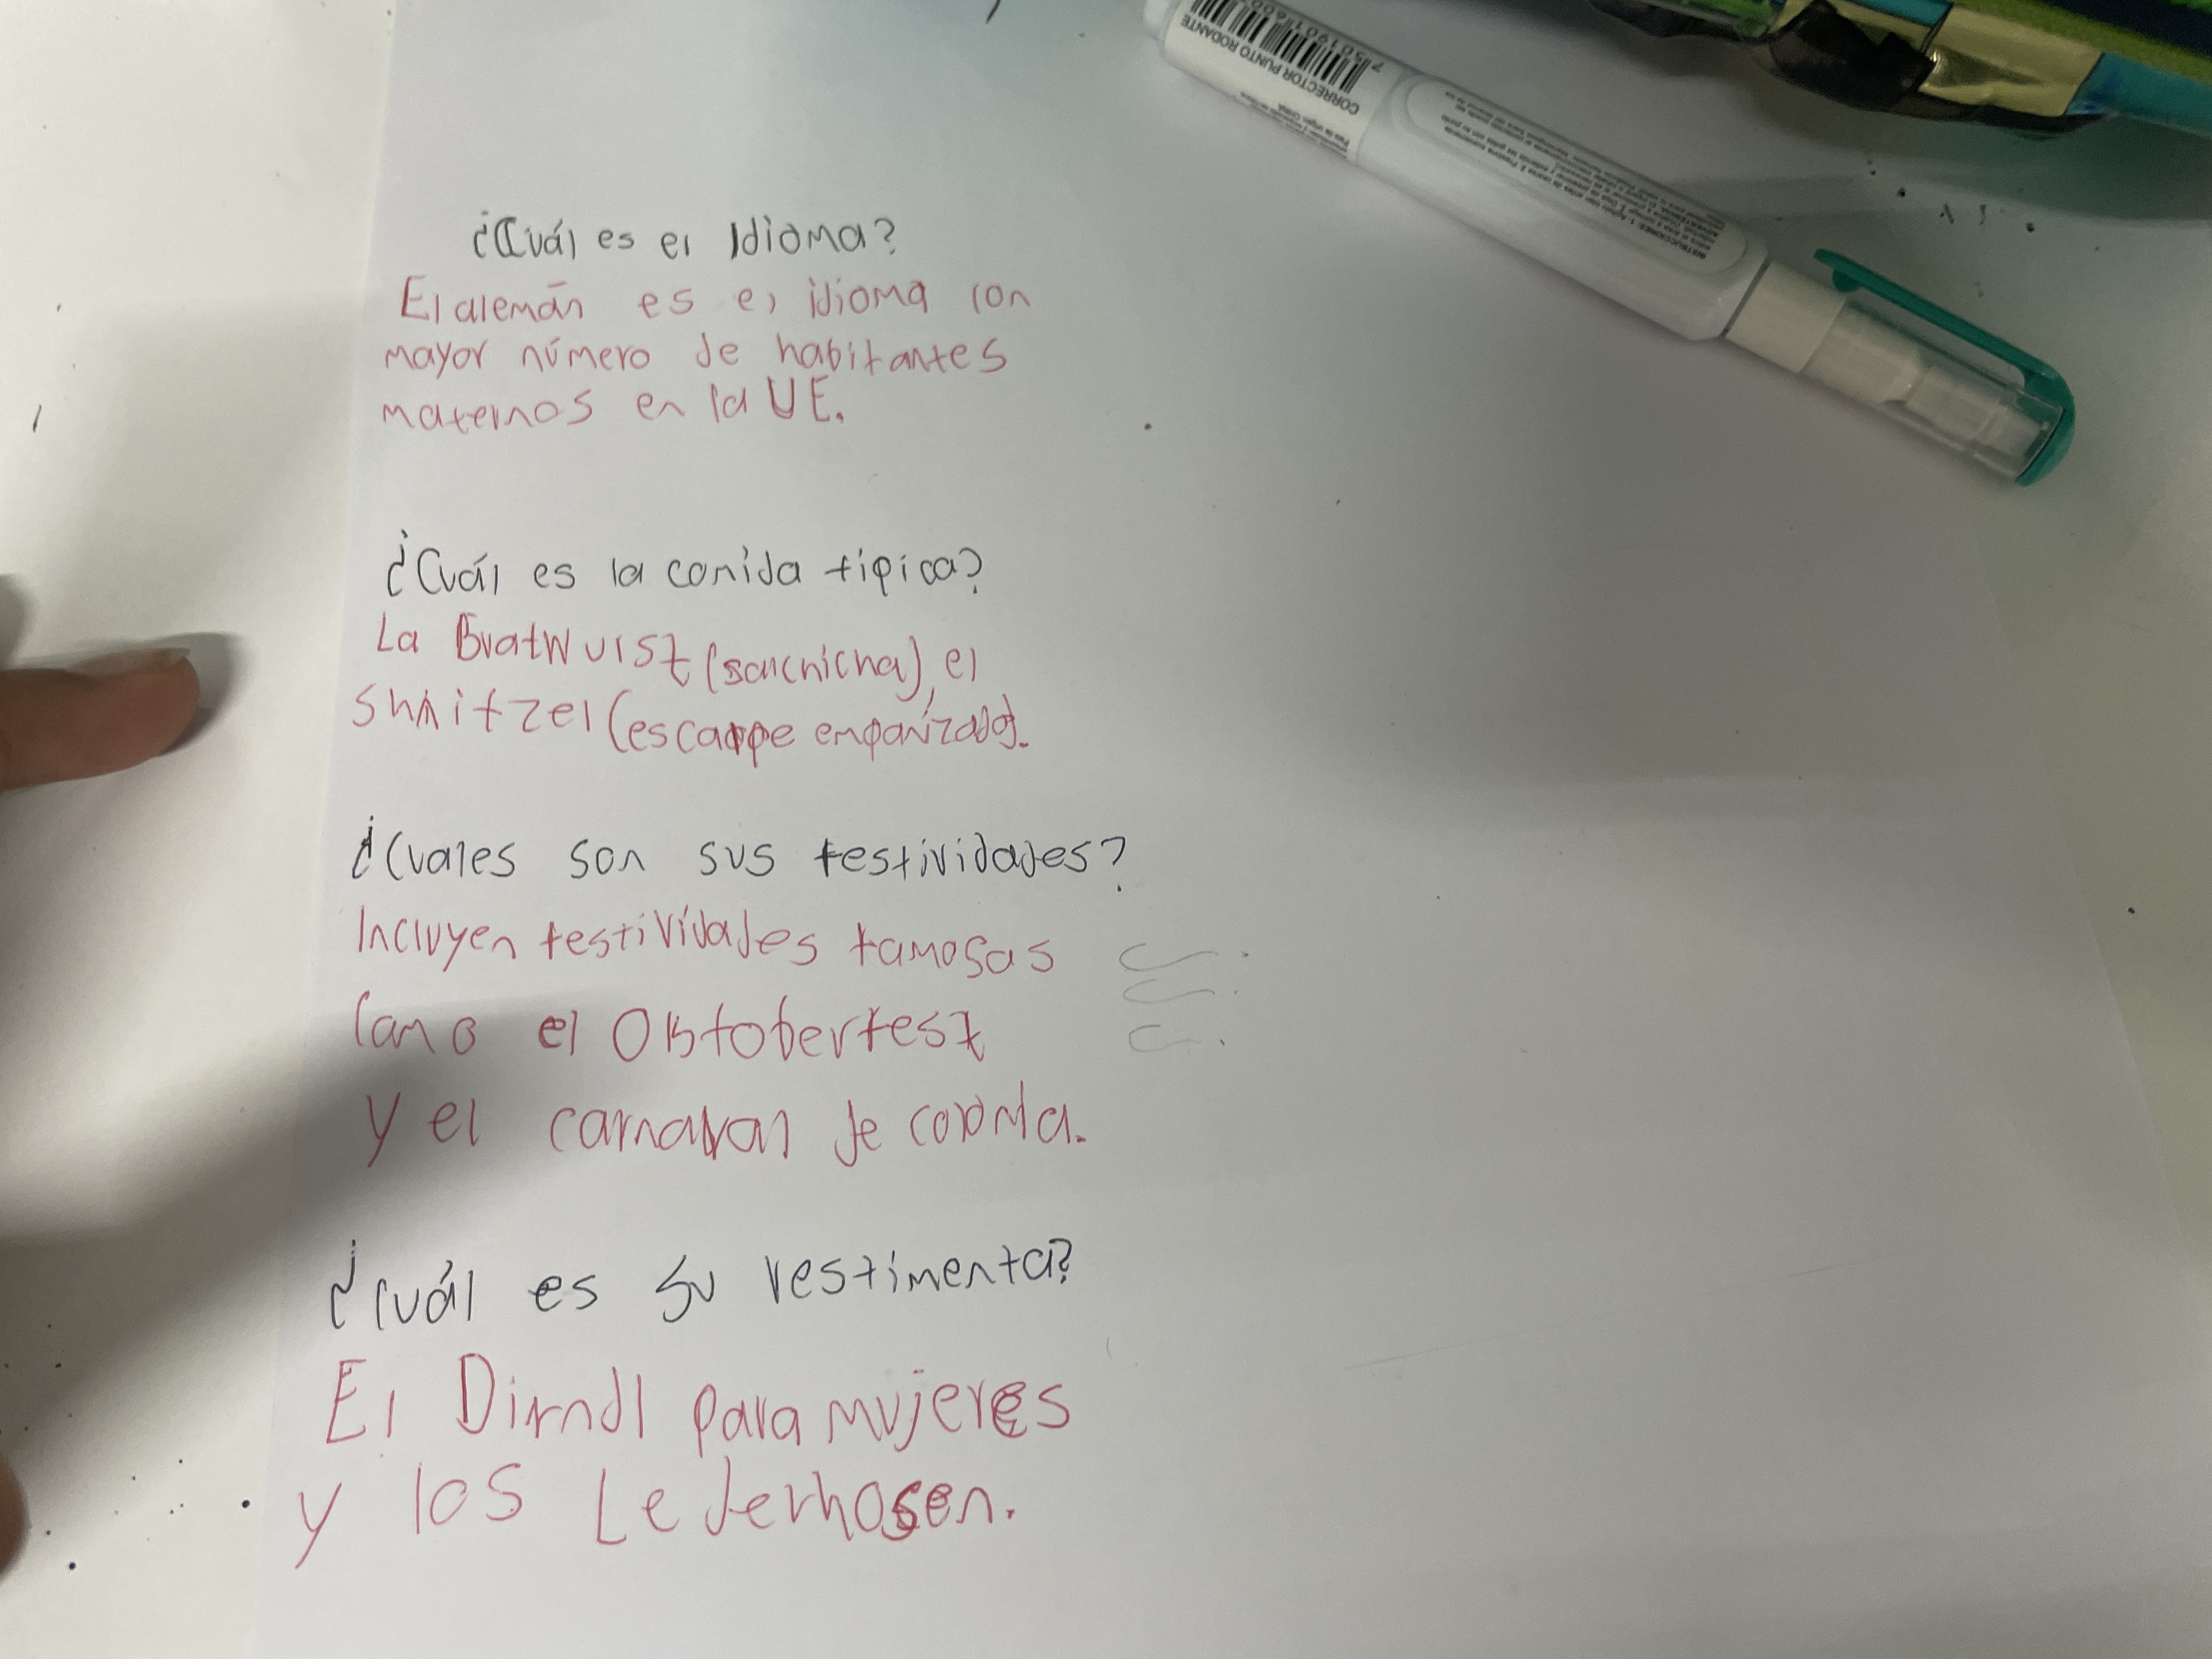 CORRECTOR PUNTO RODANTE
¿Cuál es el Idioma?
El alemán es el idioma con
mayor número de habitantes
maternos en la UE.
¿Cuál es la comida típica?
La Bratwurst (salchicha), el
Shnitzel (escarpe empanizado).
¿Cuales son sus festividades?
Incluyen festividades famosas
Como el Oktoberfest
y el carnaval de colonia.
¿Cuál es su vestimenta?
El Dirndl para mujeres
y los Lederhosen.